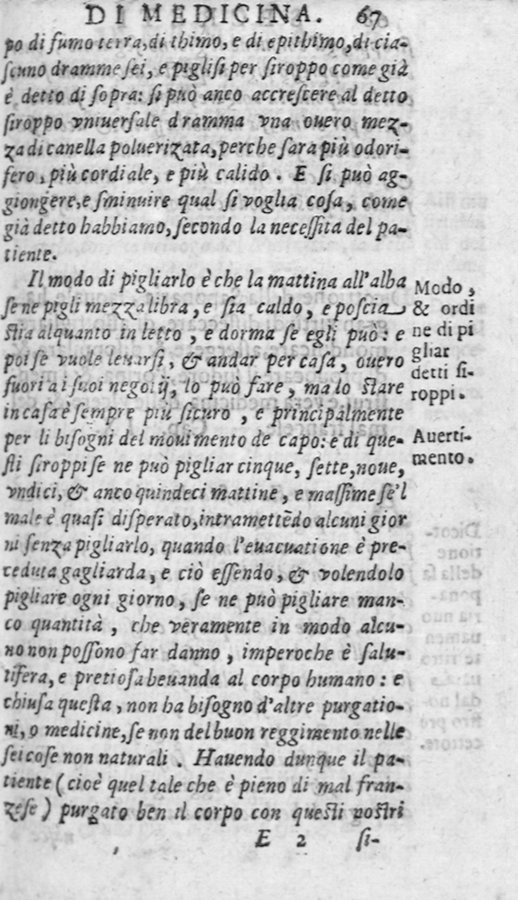 DI MEDICINA. 67
po di fumo terra, di thimo, e di epithimo, di cia-
ſcuno dramme ſei, e pigliſi per ſiroppo come già
è detto di ſopra: ſi può anco accreſcere al detto
ſiroppo vniuerſale dramma vna ouero mez-
za di canella poluerizata, perche ſara più odori-
fero, più cordiale, e più calido. E ſi può ag-
giongere, e ſminuire qual ſi voglia coſa, come
già detto habbiamo, ſecondo la neceſſita del pa-
tiente.
Il modo di pigliarlo è che la mattina all'alba
ſe ne pigli mezza libra, e ſia caldo, e poſcia
ſtia alquanto in letto, e dorma ſe egli può: e
poi ſe vuole leuarſi, & andar per caſa, ouero
fuori a i ſuoi negotij, lo può fare, ma lo ſtare
in caſa è ſempre più ſicuro, e principalmente
per li biſogni del mouimento de capo: e di que-
ſti ſiroppi ſe ne può pigliar cinque, ſette, noue,
vndici, & anco quindeci mattine, e maſſime ſe'l
male è quaſi diſperato, intramettēdo alcuni gior
ni ſenza pigliarlo, quando l'euacuatione è pre-
ceduta gagliarda, e ciò eſſendo, & volendolo
pigliare ogni giorno, ſe ne può pigliare man-
co quantità, che veramente in modo alcu-
no non poſſono far danno, imperoche è ſalu-
tifera, e pretioſa beuanda al corpo humano: e
chiuſa queſta, non ha biſogno d'altre purgatio-
ni, o medicine, ſe non del buon reggimento nelle
ſei coſe non naturali. Hauendo dunque il pa-
tiente (cioè quel tale che è pieno di mal fran-
zeſe) purgato ben il corpo con queſti noſtri
E 2 ſi-
Modo,
& ordi
ne di pi
gliar
detti ſi-
roppi.
Auerti-
mento.